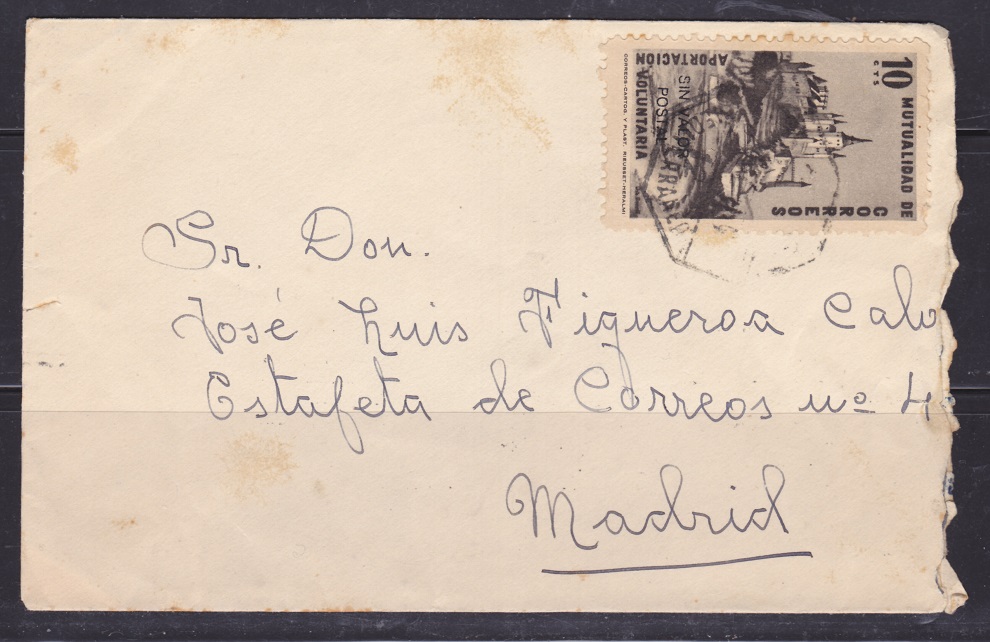 10
CTS
MUTUALIDAD DE
CORREOS
APORTACION
VOLUNTARIA
SIN VALOR
POSTAL
CORREOS-CARTOG. Y PLAST. RIEUSSET-HERALMI
Sr. Don.
José Luis Figueroa Calvo
Estafeta de Correos nº 4
Madrid